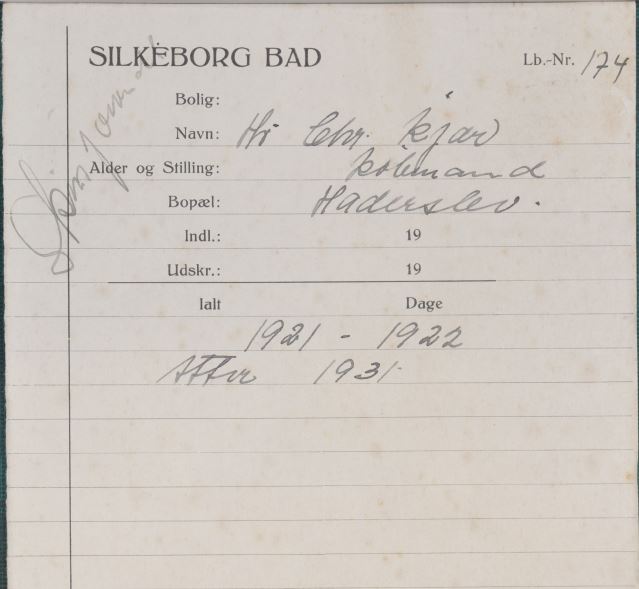 SILKEBORG BAD
Lb.-Nr. 174
Bolig:
Navn: Hr Chr. Kjær
Alder og Stilling: Købmand
Bopæl: Haderslev.
Indl.: 19
Udskr.: 19
Ialt Dage
1921 - 1922
Atter 1931